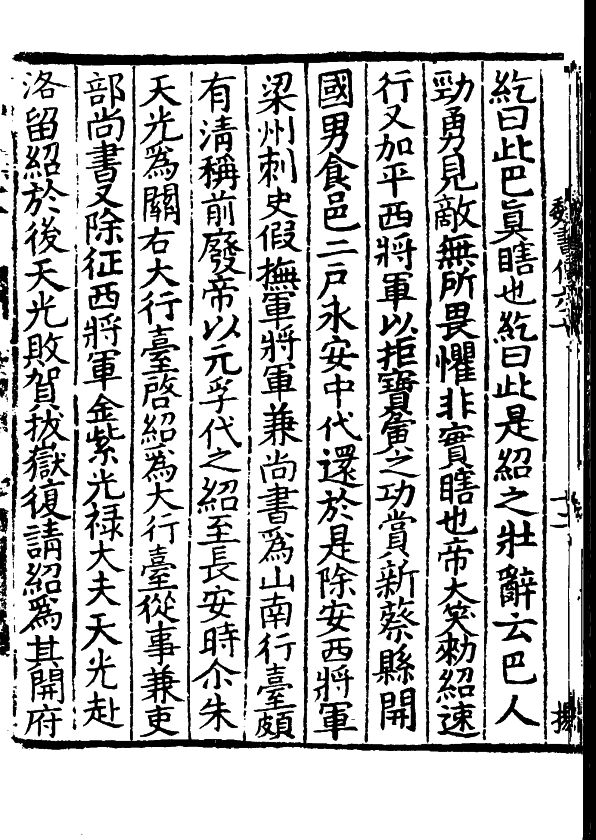 紇曰此巴真瞎也紇曰此是紹之壯辭云巴人
勁勇見敵無所畏懼非實瞎也帝大笑勑紹速
行又加平西將軍以拒寶夤之功賞新蔡縣開
國男食邑二户永安中代還於是除安西將軍
梁州刺史假撫軍將軍兼尚書為山南行臺頗
有清稱前廢帝以元孚代之紹至長安時尒朱
天光為關右大行臺啓紹為大行臺從事兼吏
部尚書又除征西將軍金紫光禄大夫天光赴
洛留紹於後天光敗賀拔嶽復請紹為其開府